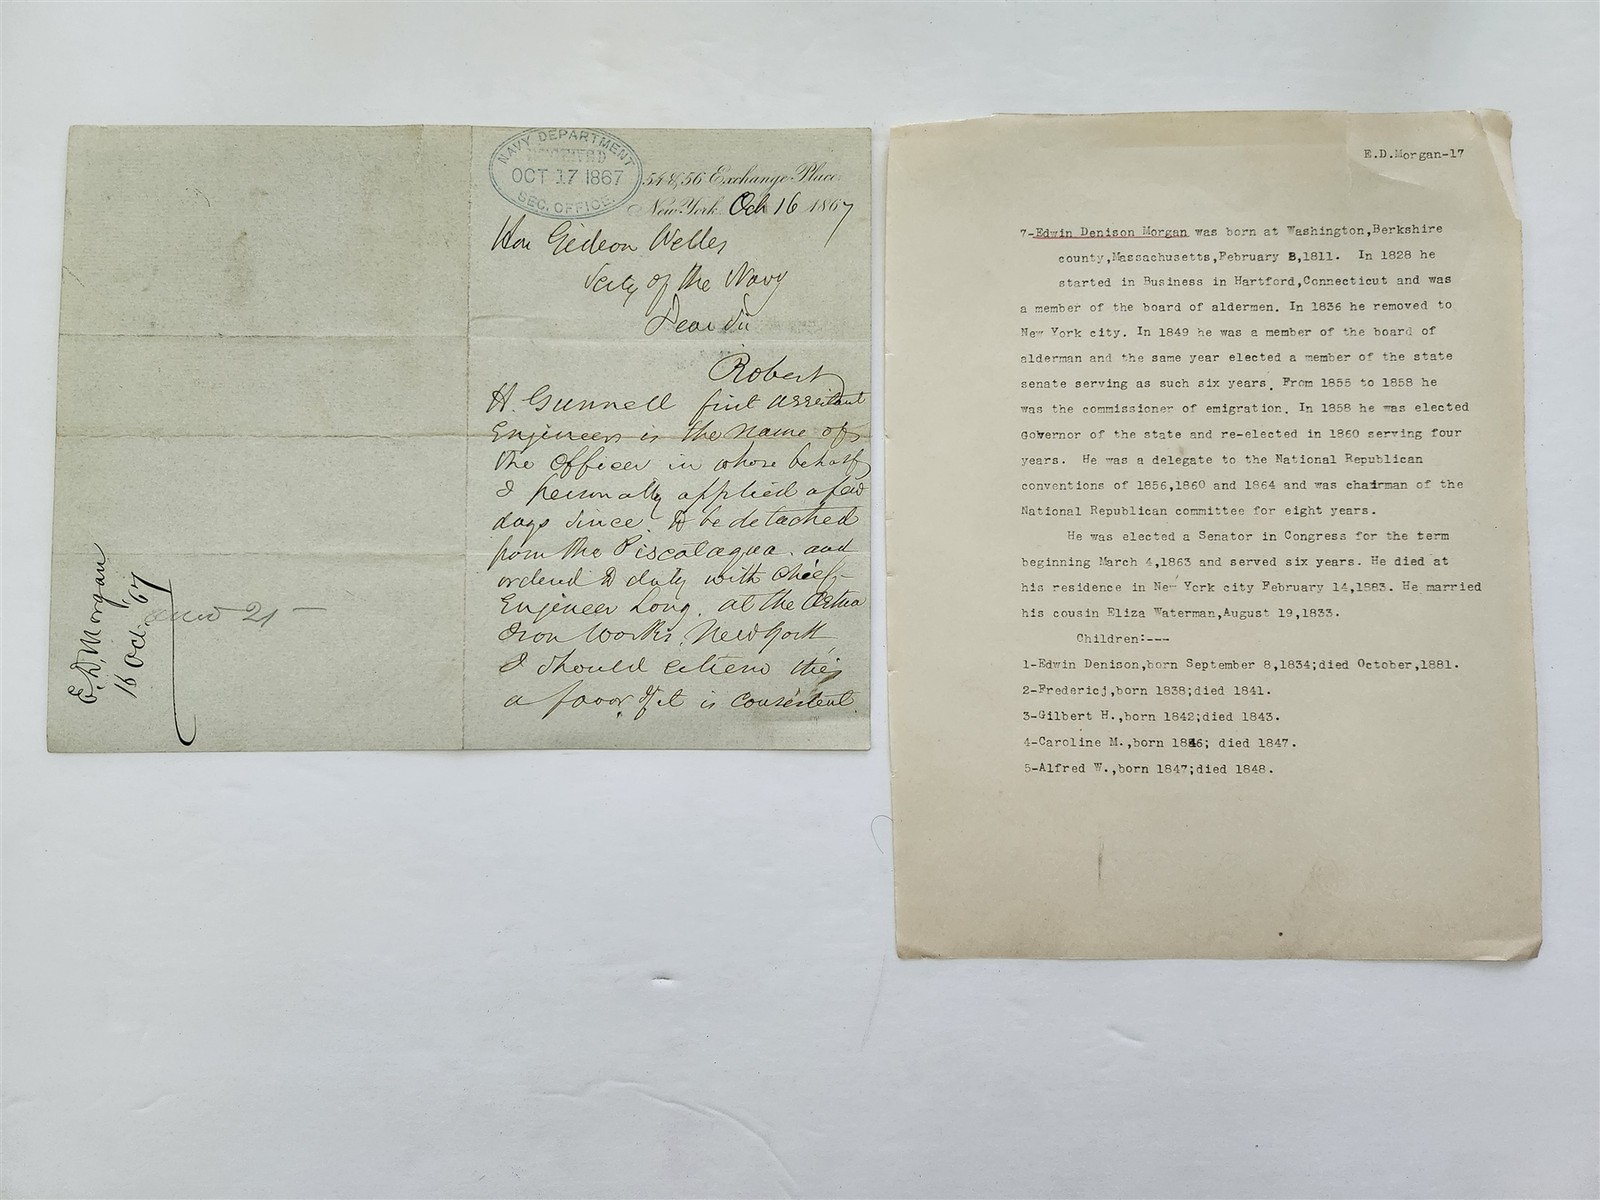 NAVY DEPARTMENT
RECEIVED
OCT 17 1867
SEC. OFFICE.
54 & 56 Exchange Place.
New York Oct 16 1867
Hon Gideon Welles
Secty of the Navy
Dear Sir
Robert
H. Gunnell first assistant
Engineer is the name of
the officer in whose behalf
I personally applied a few
days since. to be detached
from the Piscataqua. and
ordered to duty with Chief-
Engineer Long. at the Aetna
Iron Works. New York
I should esteem this
a favor if it is consistent
E. D. Morgan
16 Oct. '67
21 —
E.D.Morgan-17
7-Edwin Denison Morgan was born at Washington,Berkshire
county,Massachusetts,February 8,1811. In 1828 he
started in Business in Hartford,Connecticut and was
a member of the board of aldermen. In 1836 he removed to
New York city. In 1849 he was a member of the board of
alderman and the same year elected a member of the state
senate serving as such six years. From 1855 to 1858 he
was the commissioner of emigration. In 1858 he was elected
Governor of the state and re-elected in 1860 serving four
years. He was a delegate to the National Republican
conventions of 1856,1860 and 1864 and was chairman of the
National Republican committee for eight years.
He was elected a Senator in Congress for the term
beginning March 4,1863 and served six years. He died at
his residence in New York city February 14,1883. He married
his cousin Eliza Waterman,August 19,1833.
Children:---
1-Edwin Denison,born September 8,1834;died October,1881.
2-Fredericj,born 1838;died 1841.
3-Gilbert H.,born 1842;died 1843.
4-Caroline M.,born 1846; died 1847.
5-Alfred W.,born 1847;died 1848.